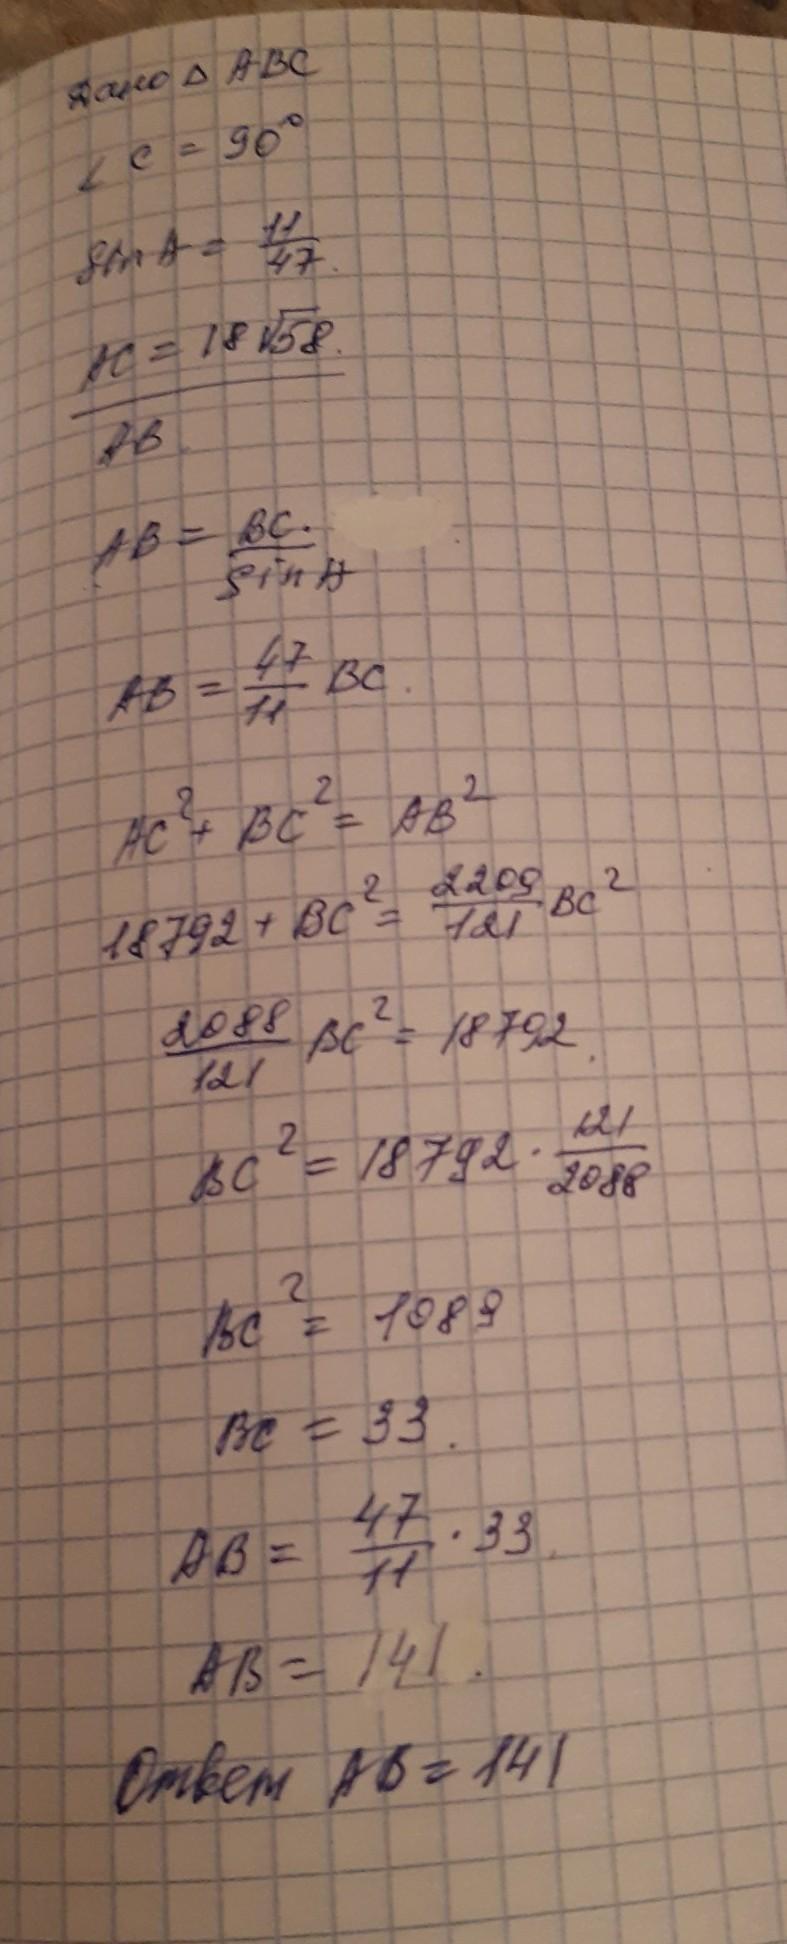 Дано Δ ABC
∠ C = 90°
sin A = 11/47.
AC = 18√58.
AB
AB = BC/sin A
AB = 47/11 BC.
AC² + BC² = AB²
18792 + BC² = 2209/121 BC²
2088/121 BC² = 18792.
BC² = 18792 · 121/2088
BC² = 1089
BC = 33.
AB = 47/11 · 33.
AB = 141.
Ответ AB = 141